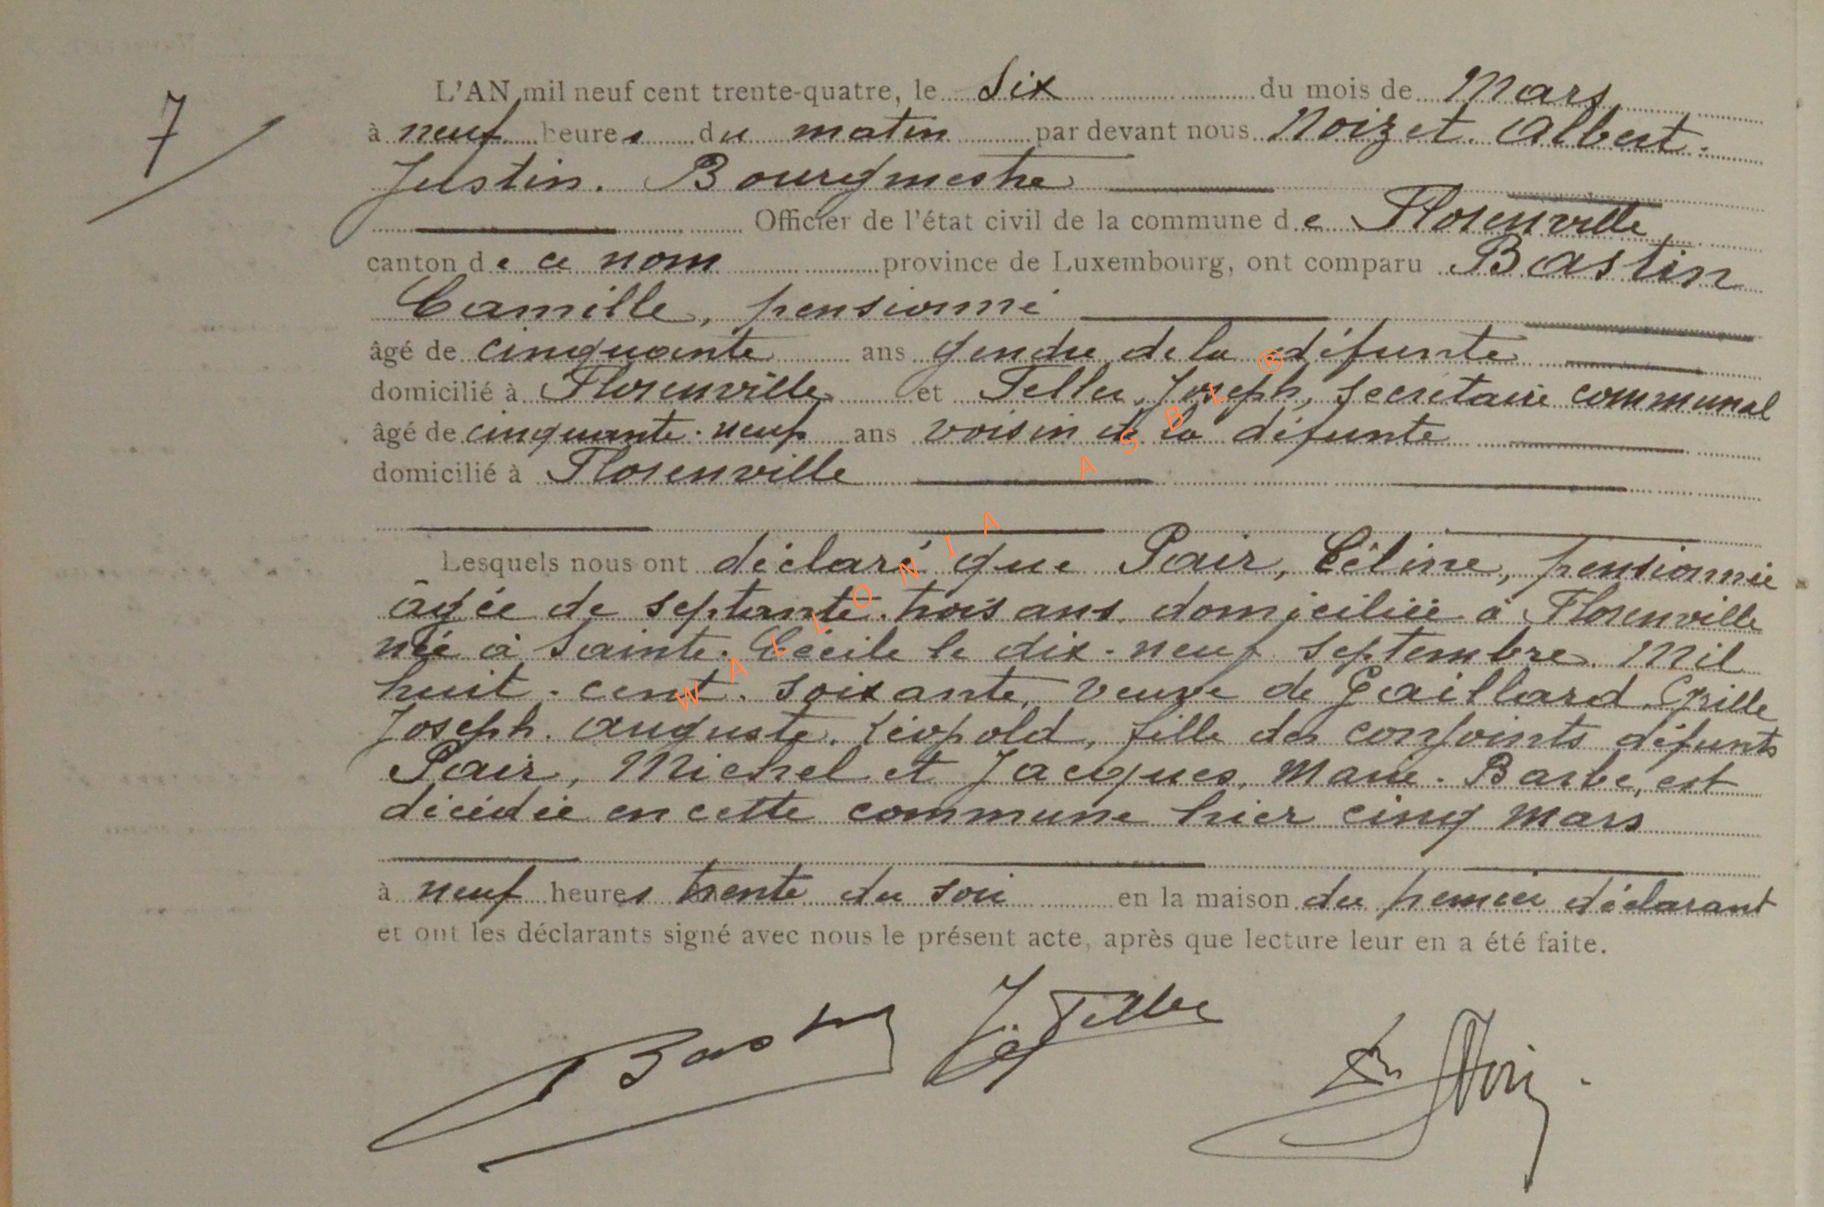 7
L'AN mil neuf cent trente-quatre, le six du mois de Mars
à neuf heures du matin par devant nous Noizet Albert
Justin. Bourgmestre
Officier de l'état civil de la commune de Florenville
canton de ce nom province de Luxembourg, ont comparu Bastin
Camille, pensionné
âgé de cinquante ans gendre de la défunte
domicilié à Florenville et Feller Joseph, secrétaire communal
âgé de cinquante-neuf ans voisin de la défunte
domicilié à Florenville
Lesquels nous ont déclaré que Pair, Céline, pensionnée
âgée de septante-trois ans domiciliée à Florenville
née à Sainte-Cécile le dix-neuf septembre Mil
huit-cent-soixante, veuve de Gaillard
Joseph. Auguste. Léopold, fille des conjoints défunts
Pair, Michel et Jacques, Marie-Barbe, est
décédée en cette commune hier cinq Mars
à neuf heures trente du soir en la maison du premier déclarant
et ont les déclarants signé avec nous le présent acte, après que lecture leur en a été faite.
Bastin J. Feller
WALLONIA ASBL ®